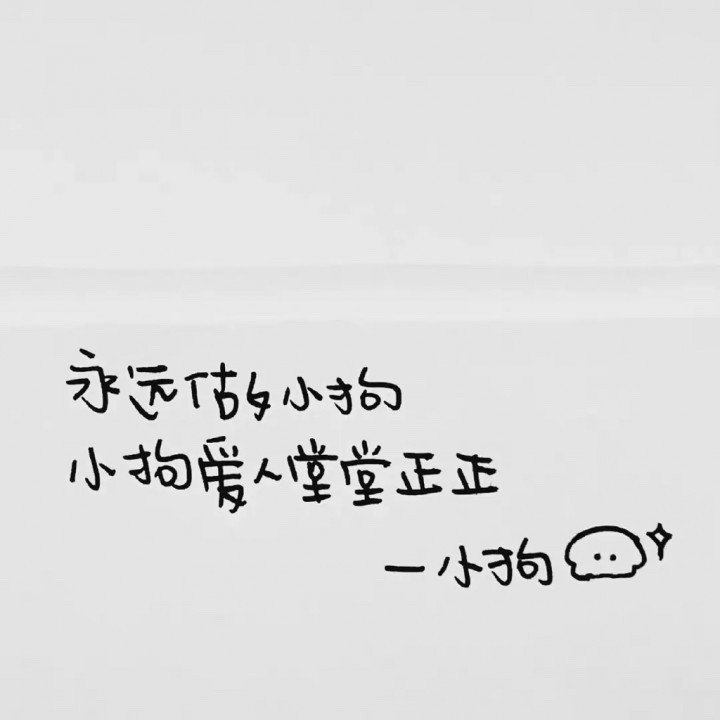 永远做小狗
小狗爱人堂堂正正
一小狗